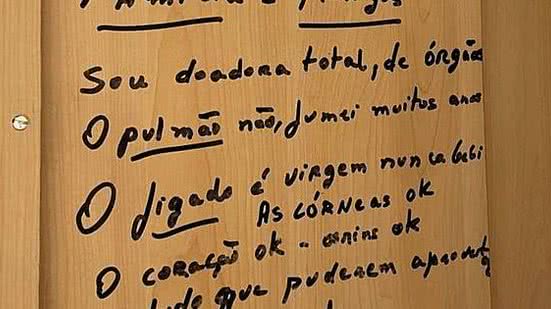 Sou doadora total, de órgãos
O pulmão não, fumei muitos anos
O fígado é virgem nunca bebi
AS CÓRNEAS OK
O coração OK - OK
que puderem